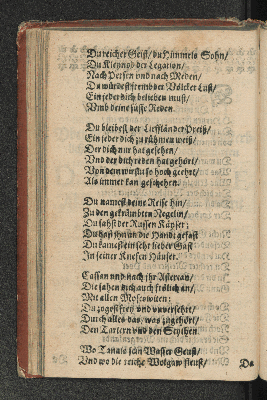 Du reicher Geist/ du Himmels Sohn/
Du Kleynod der Legation/
Nach Persen vnd nach Meden/
Da würdest frembder Völcker Lust/
Ein jeder dich belieben must/
Vmb deine süsse Reden.
Du bleibest der Liefländer Preiß/
Ein jeder dich zu rühmen weiß/
Der dich nur hat gesehen/
Vnd der dich reden hat gehört/
Von dem wirstu so hoch geehrt/
Als immer kan geschehen.
Du namest deine Reise hin/
Zu den gekrümbten Regelin/
Du sahst der Russen Käyser:
Du hast ihn an die Handt gefast
Du kamest ein sehr lieber Gast
In seiner Knesen Häuser.
Cassan und nach ihr Astercan/
Die sahen dich auch frölich an/
Mit allen Moscowiten:
Du zogest frey vnd unversehrt/
Durch alles das, was zugehört/
Den Tartern vnd den Scythen.
Wo Tanais sein Wasser Geust/
Vnd wo die reiche Wolgaw fleust/
Da